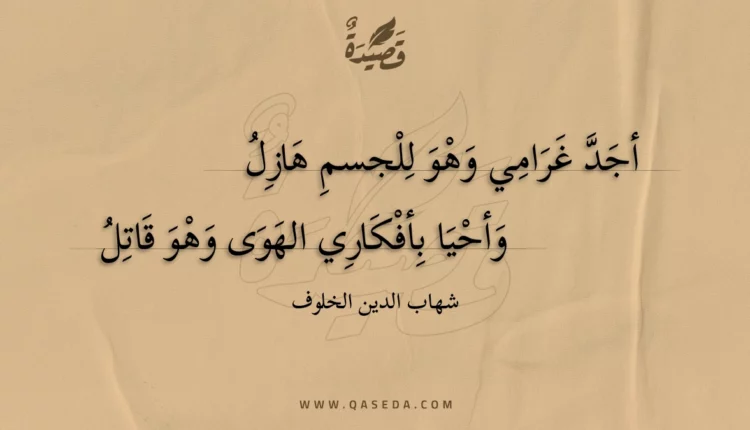 قَصِيْدَةٌ
أجَدَّ غَرَامِي وَهْوَ لِلْجسمِ هَازِلُ
وَأحْيَا بِأفْكَارِي الهَوَى وَهْوَ قَاتِلُ
شهاب الدين الخلوف
WWW.QASEDA.COM